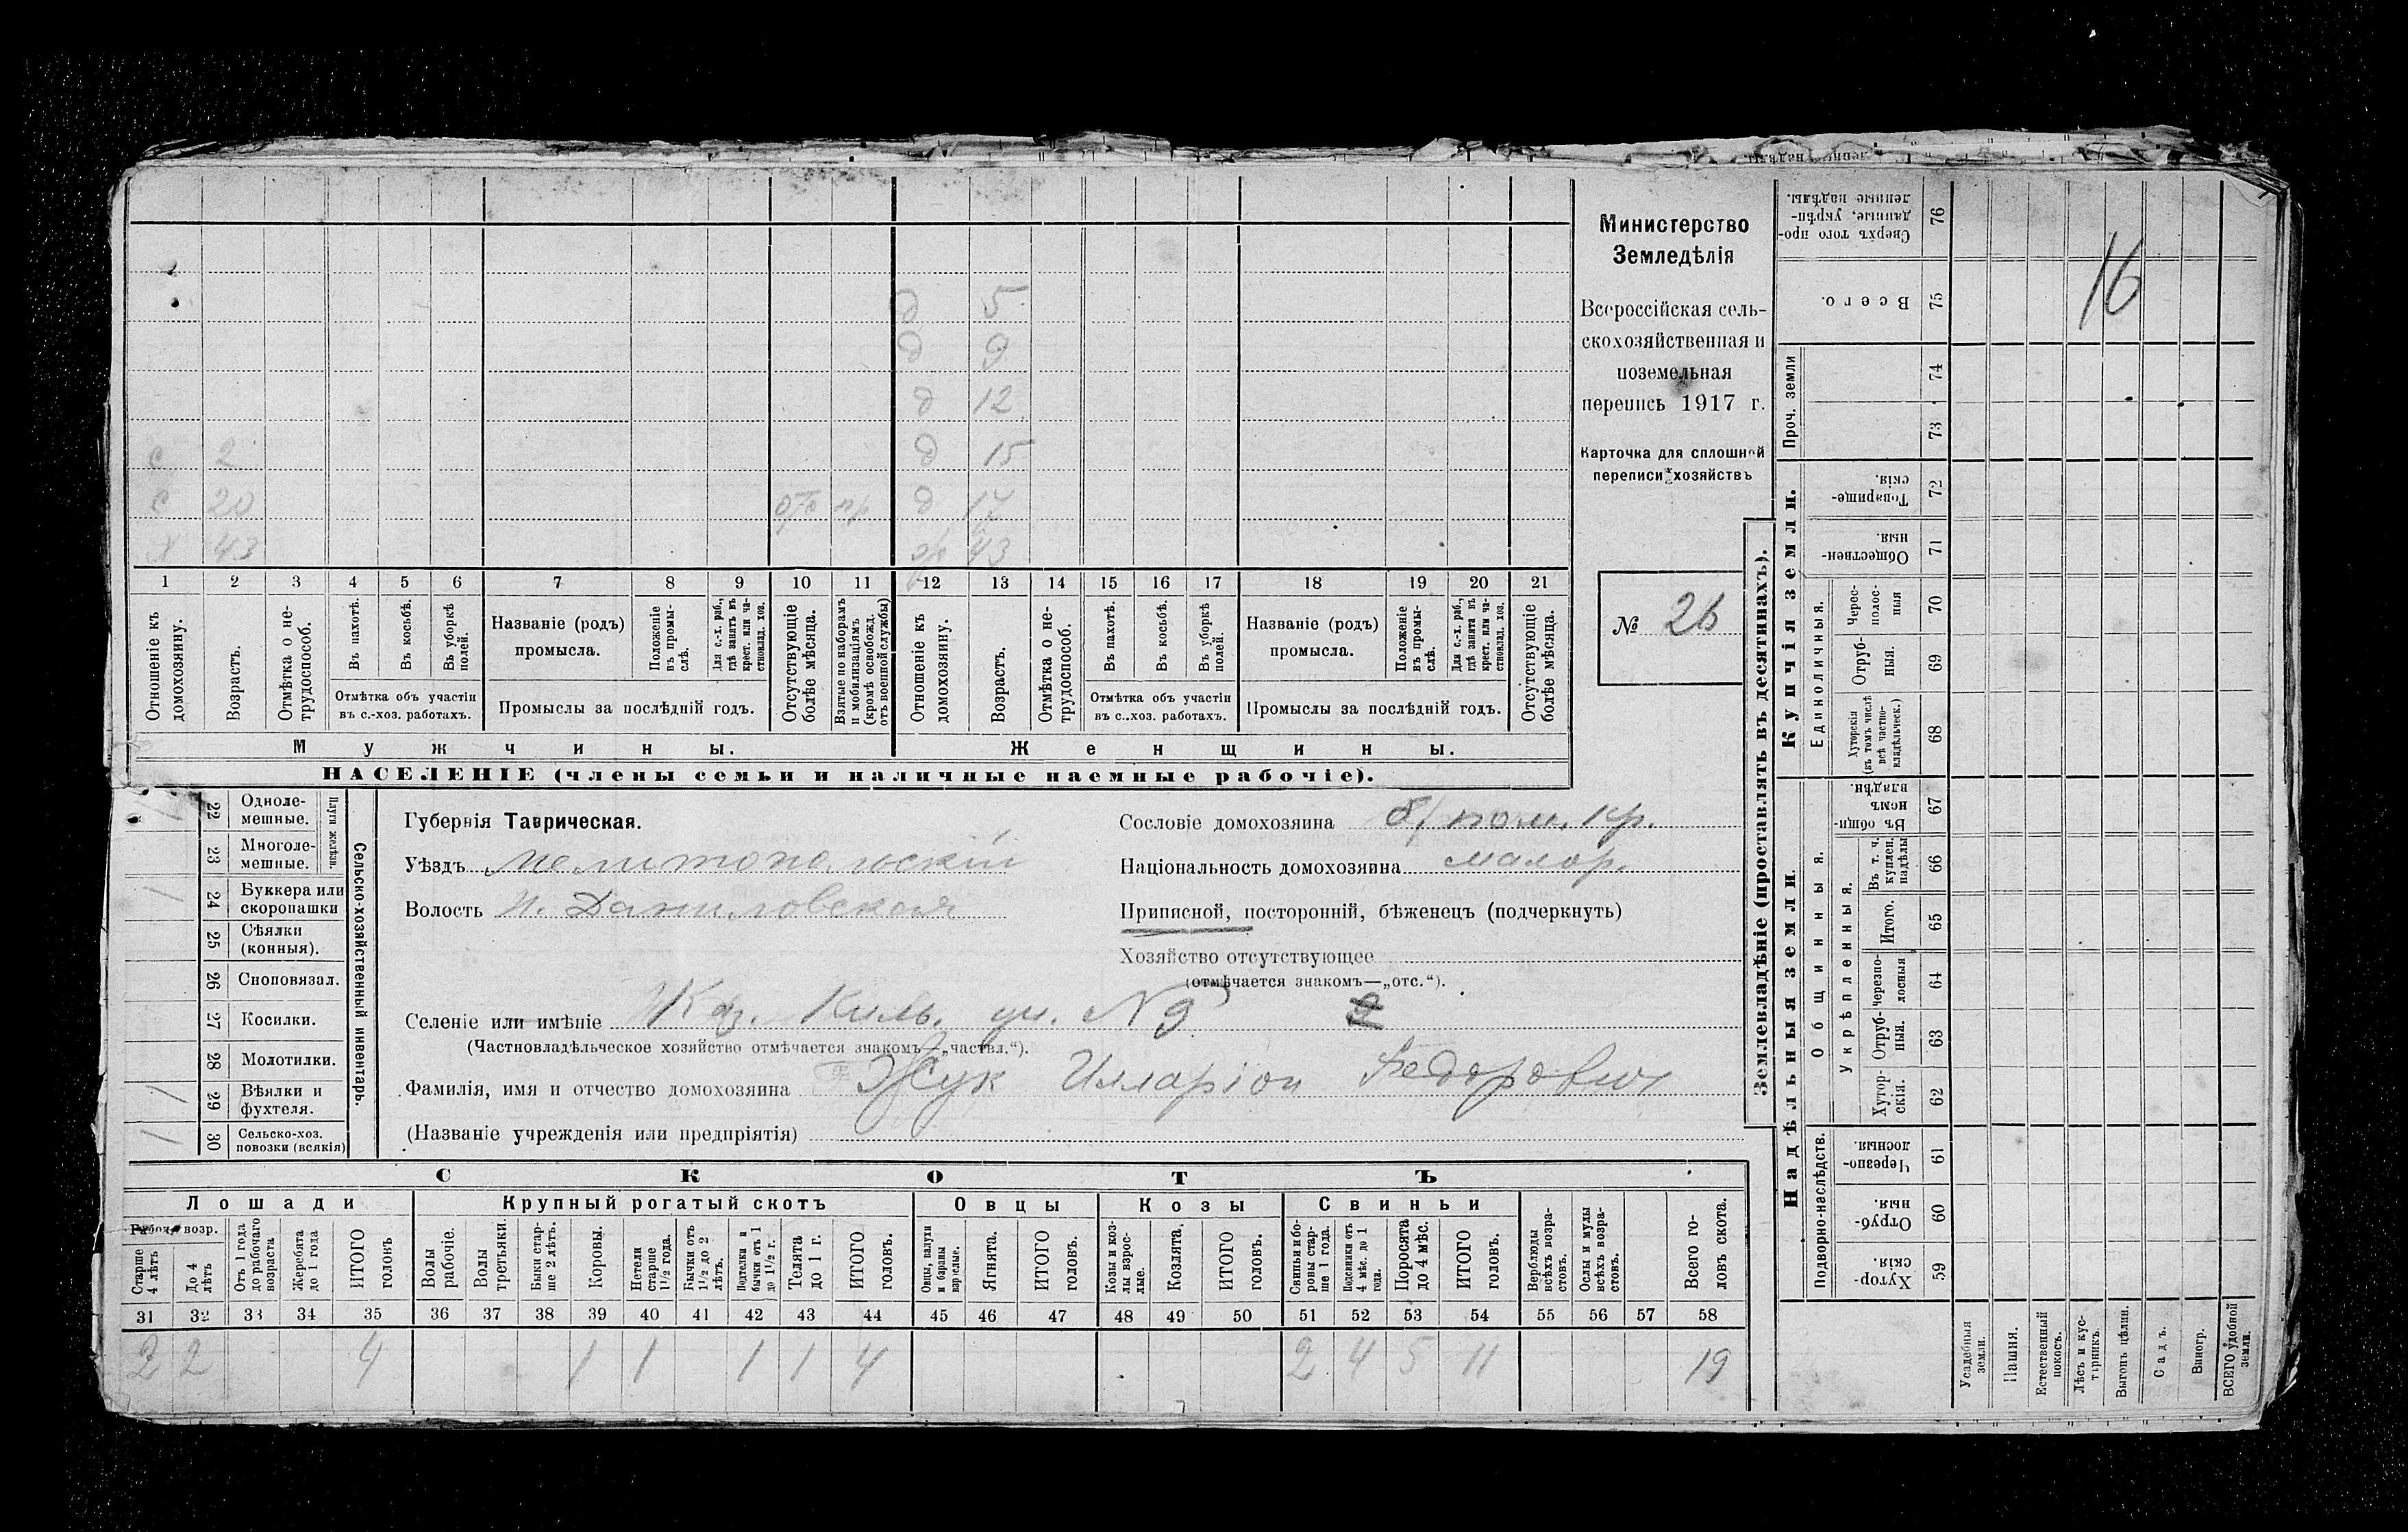 Министерство
Земледѣлія
Всероссійская сель-
скохозяйственная и
поземельная
перепись 1917 г.
Карточка для сплошной
переписи хозяйствъ
№ 26
д 5
д 9
д 12
д 15
с 2
с 20 отс нр д 17
х 43 ж 43
1 2 3 4 5 6 7 8 9 10 11 12 13 14 15 16 17 18 19 20 21
Отношеніе къ домохозяину.
Возрастъ.
Отмѣтка о не-трудоспособ.
Въ пахотѣ.
Въ косьбѣ.
Въ уборкѣ полей.
Отмѣтка объ участіи
въ с.-хоз. работахъ.
Названіе (родъ)
промысла.
Положеніе въ промы-слѣ.
Для с.-х. раб., гдѣ занятъ въ крест. или ча-стновлад. хоз.
Промыслы за послѣдній годъ.
Отсутствующіе болѣе мѣсяца.
Взятые по наборамъ и мобилизаціямъ (кромѣ освобожд. отъ военной службы)
Отношеніе къ домохозяину.
Возрастъ.
Отмѣтка о не-трудоспособ.
Въ пахотѣ.
Въ косьбѣ.
Въ уборкѣ полей.
Отмѣтка объ участіи
въ с..хоз. работахъ.
Названіе (родъ)
промысла.
Положеніе въ промы-слѣ.
Для с.-х. раб., гдѣ занята въ крест. или ча-стновлад. хоз.
Промыслы за послѣдній годъ.
Отсутствующіе болѣе мѣсяца.
Мужчины.
Женщины.
НАСЕЛЕНІЕ (члены семьи и наличные наемные рабочіе).
Сельско-хозяйственный инвентарь.
Плуги желѣзн.
22 Одноле-мешные.
23 Многоле-мешные.
1 24 Буккера или скоропашки
25 Сѣялки (конныя).
26 Сноповязал.
27 Косилки.
28 Молотилки.
1 29 Вѣялки и фухтеля.
1 30 Сельско-хоз. повозки (всякія)
Губернія Таврическая.
Уѣздъ Мелитопольскій
Волость Н. Даниловская
Сословіе домохозяина б/ пом. кр.
Національность домохозяина малор.
Приписной, посторонній, бѣженецъ (подчеркнуть)
Хозяйство отсутствующее
(отмѣчается знакомъ—„отс.“).
Селеніе или имѣніе Каз. Киль. уч. № 9
(Частновладѣльческое хозяйство отмѣчается знакомъ—„частвл.“).
Фамилія, имя и отчество домохозяина Жук Илларіон Федорович
(Названіе учрежденія или предпріятія)
СКОТЪ
Лошади Крупный рогатый скотъ Овцы Козы Свиньи
Рабоч. возр.
Старше 4 лѣтъ
До 4 лѣтъ
Отъ 1 года до рабочаго возраста
Жеребята до 1 года
ИТОГО головъ
Волы рабочіе.
Волы третьяки.
Быки стар-ше 2 лѣтъ.
Коровы.
Нетели старше 1½ года.
Бычки отъ 1½ до 2 лѣтъ.
Подтелки и бычки отъ 1 до 1½ г.
Телята до 1 г.
ИТОГО головъ.
Овцы, валухи и бараны взрослые.
Ягнята.
ИТОГО головъ.
Козы и коз-лы взрос-лые.
Козлята.
ИТОГО головъ.
Свиньи и бо-ровы стар-ше 1 года.
Подсвинки отъ 4 мѣс. до 1 года.
Поросята до 4 мѣс.
ИТОГО головъ.
Верблюды всѣхъ возра-стовъ.
Ослы и мулы всѣхъ возра-стовъ.
Всего го-ловъ скота.
31 32 33 34 35 36 37 38 39 40 41 42 43 44 45 46 47 48 49 50 51 52 53 54 55 56 57 58
2 2 4 1 1 1 1 4 2 4 5 11 19
Землевладѣніе (проставлять въ десятинахъ).
Купчія земли.
Надѣльныя земли.
Сверхъ того про-данные, укрѣп-ленные надѣлы. 76
Всего. 75
Проч. земли 74
73
Товарище-скія. 72
Обществен-ныя. 71
Единоличныя.
Черес-полос-ныя 70
Отруб-ныя. 69
Хуторскія (въ томъ числѣ всѣ частно-владѣльческ.) 68
Общинныя.
Въ общин-номъ владѣн. 67
Укрѣпленныя.
Въ т. ч. куплен. надѣлы 66
Итого. 65
Черезпо-лосныя 64
Отруб-ныя. 63
Хутор-скія. 62
Подворно-наслѣдств.
Черезпо-лосныя. 61
Отруб-ныя. 60
Хутор-скія. 59
Усадебныя земли.
Пашня.
Естественный покосъ.
Лѣсъ и кус-тарникъ.
Выгонъ цѣлин.
Садъ.
Виногр.
ВСЕГО удобной земли.
16